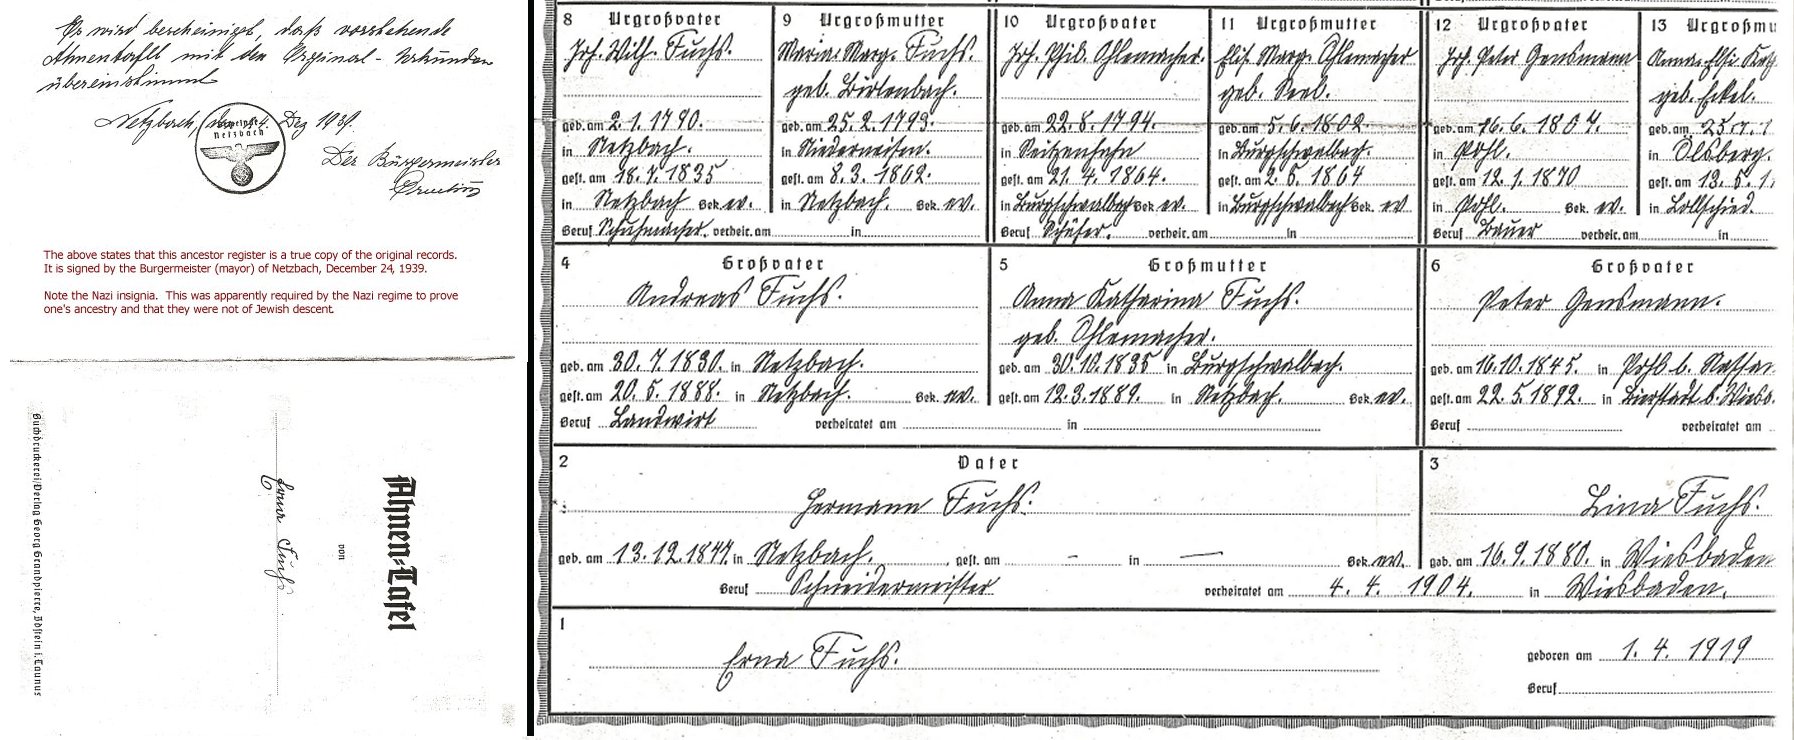 Es wird bescheinigt, daß vorstehende
Ahnentafel mit den Original-Urkunden
übereinstimmt
Netzbach, den 24. Dez 1939.
Netzbach
Der Bürgermeister
The above states that this ancestor register is a true copy of the original records.
It is signed by the Burgermeister (mayor) of Netzbach, December 24, 1939.
Note the Nazi insignia. This was apparently required by the Nazi regime to prove
one's ancestry and that they were not of Jewish descent.
Ahnen=Tafel
von
Erna Fuchs
Buchdruckerei/Verlag Georg Grandpierre, Idstein i. Taunus
8 Urgroßvater
Joh. Wilh. Fuchs.
geb. am 2. 1. 1790.
in Netzbach.
gest. am 18. 7. 1835
in Netzbach Bek. ev.
Beruf Schuhmacher. verheir. am in
9 Urgroßmutter
Maria Marg. Fuchs.
geb. Birlenbach.
geb. am 25. 2. 1793.
in Niederneisen.
gest. am 8. 3. 1862.
in Netzbach. Bek. ev.
10 Urgroßvater
Joh. Phil. Ohlemacher.
geb. am 22. 8. 1794.
in Seitzenhahn
gest. am 21. 4. 1864.
in Burgschwalbach Bek. ev.
Beruf Schäfer. verheir. am in
11 Urgroßmutter
Elis. Marg. Ohlemacher
geb. Seel.
geb. am 5. 6. 1802.
in Burgschwalbach.
gest. am 2. 6. 1864
in Burgschwalbach Bek. ev
12 Urgroßvater
Joh. Peter Gensmann
geb. am 16. 6. 1807.
in Pohl.
gest. am 12. 1. 1870
in Pohl. Bek. ev.
Beruf Bauer verheir. am in
13 Urgroßmu
geb. Eckel.
geb. am 25.
in Olsberg.
gest. am
in Lollschied.
4 Großvater
Andreas Fuchs.
geb. am 30. 7. 1830. in Netzbach.
gest. am 20. 5. 1888. in Netzbach. Bek. ev.
Beruf Landwirt verheiratet am in
5 Großmutter
Anna Katharina Fuchs.
geb. Ohlemacher.
geb. am 30. 10. 1835 in Burgschwalbach.
gest. am 12. 3. 1889. in Netzbach. Bek. ev.
6 Großvater
Peter Gensmann.
geb. am 16. 10. 1845. in Pohl b. Nassau
gest. am 22. 5. 1892. in Bierstadt b. Wiesb.
Beruf verheiratet am
2 Vater
Hermann Fuchs.
geb. am 13. 12. 1877. in Netzbach. gest. am – in — Bek. ev.
Beruf Schneidermeister verheiratet am 4. 4. 1904. in Wiesbaden.
3
Lina Fuchs.
geb. am 16. 9. 1880. in Wiesbaden
1
Erna Fuchs.
geboren am 1. 4. 1919
Beruf